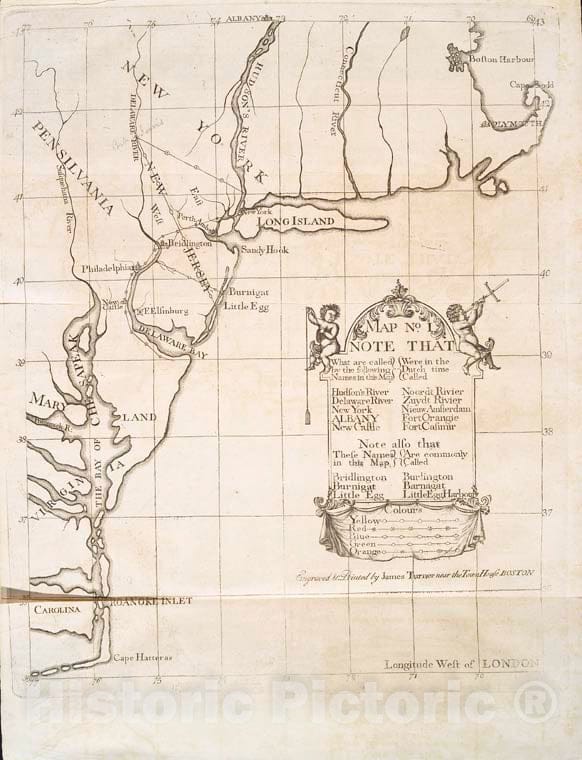 77
76
75
ALBANY
73
72
71
70
69
43
NEW YORK
HUDSON'S RIVER
Connecticut River
Boston Harbour
Cape Codd
42
PLYMOUTH
DELAWARE RIVER
PENSILVANIA
Susquehana River
41
NEW JERSEY
East
West
Perth Amboy
New York
LONG ISLAND
Bridlington
Sandy Hook
Philadelphia
40
New Castle
F. Elsinburg
Burnigat
Little Egg
DELAWARE BAY
39
MARY LAND
THE BAY OF CHESAPEAK
38
VIRGINIA
37
CAROLINA
ROANOKE INLET
Cape Hatteras
MAP No. I.
NOTE THAT
What are called by the following Names in this Map
Were in the Dutch time Called
Hudson's River Noordt Rivier
Delaware River Zuydt Rivier
New York Nieuw Amsterdam
ALBANY Fort Orangie
New Castle Fort Casimir
Note also that
These Names in this Map
Are commonly Called
Bridlington Burlington
Burnigat Barnagat
Little Egg Little Egg Harbour
Colours
Yellow
Red
Blue
Green
Orange
Engraved & Printed by James Turner near the Town House BOSTON
Longitude West of LONDON
76
75
74
73
72
71
70
Historic Pictoric ®